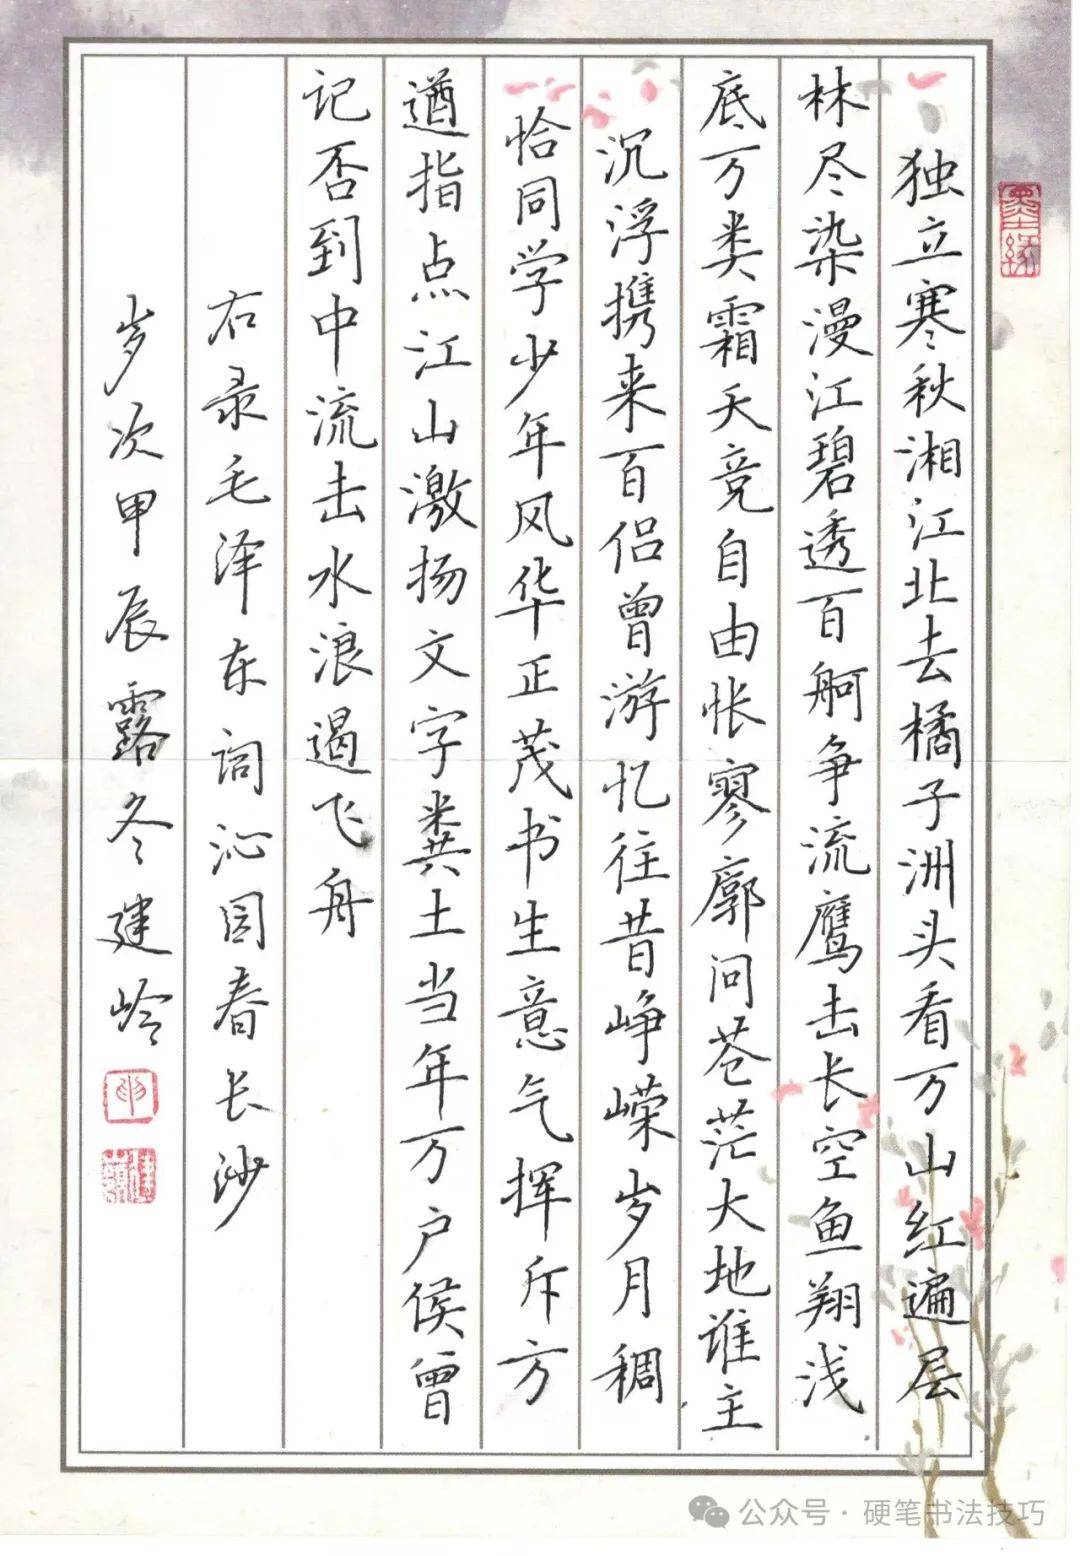 墨緣
独立寒秋湘江北去橘子洲头看万山红遍层
林尽染漫江碧透百舸争流鹰击长空鱼翔浅
底万类霜天竞自由怅寥廓问苍茫大地谁主
沉浮携来百侣曾游忆往昔峥嵘岁月稠
恰同学少年风华正茂书生意气挥斥方
遒指点江山激扬文字粪土当年万户侯曾
记否到中流击水浪遏飞舟
右录毛泽东词沁园春长沙
岁次甲辰露冬建岭
建嶺
公众号·硬笔书法技巧